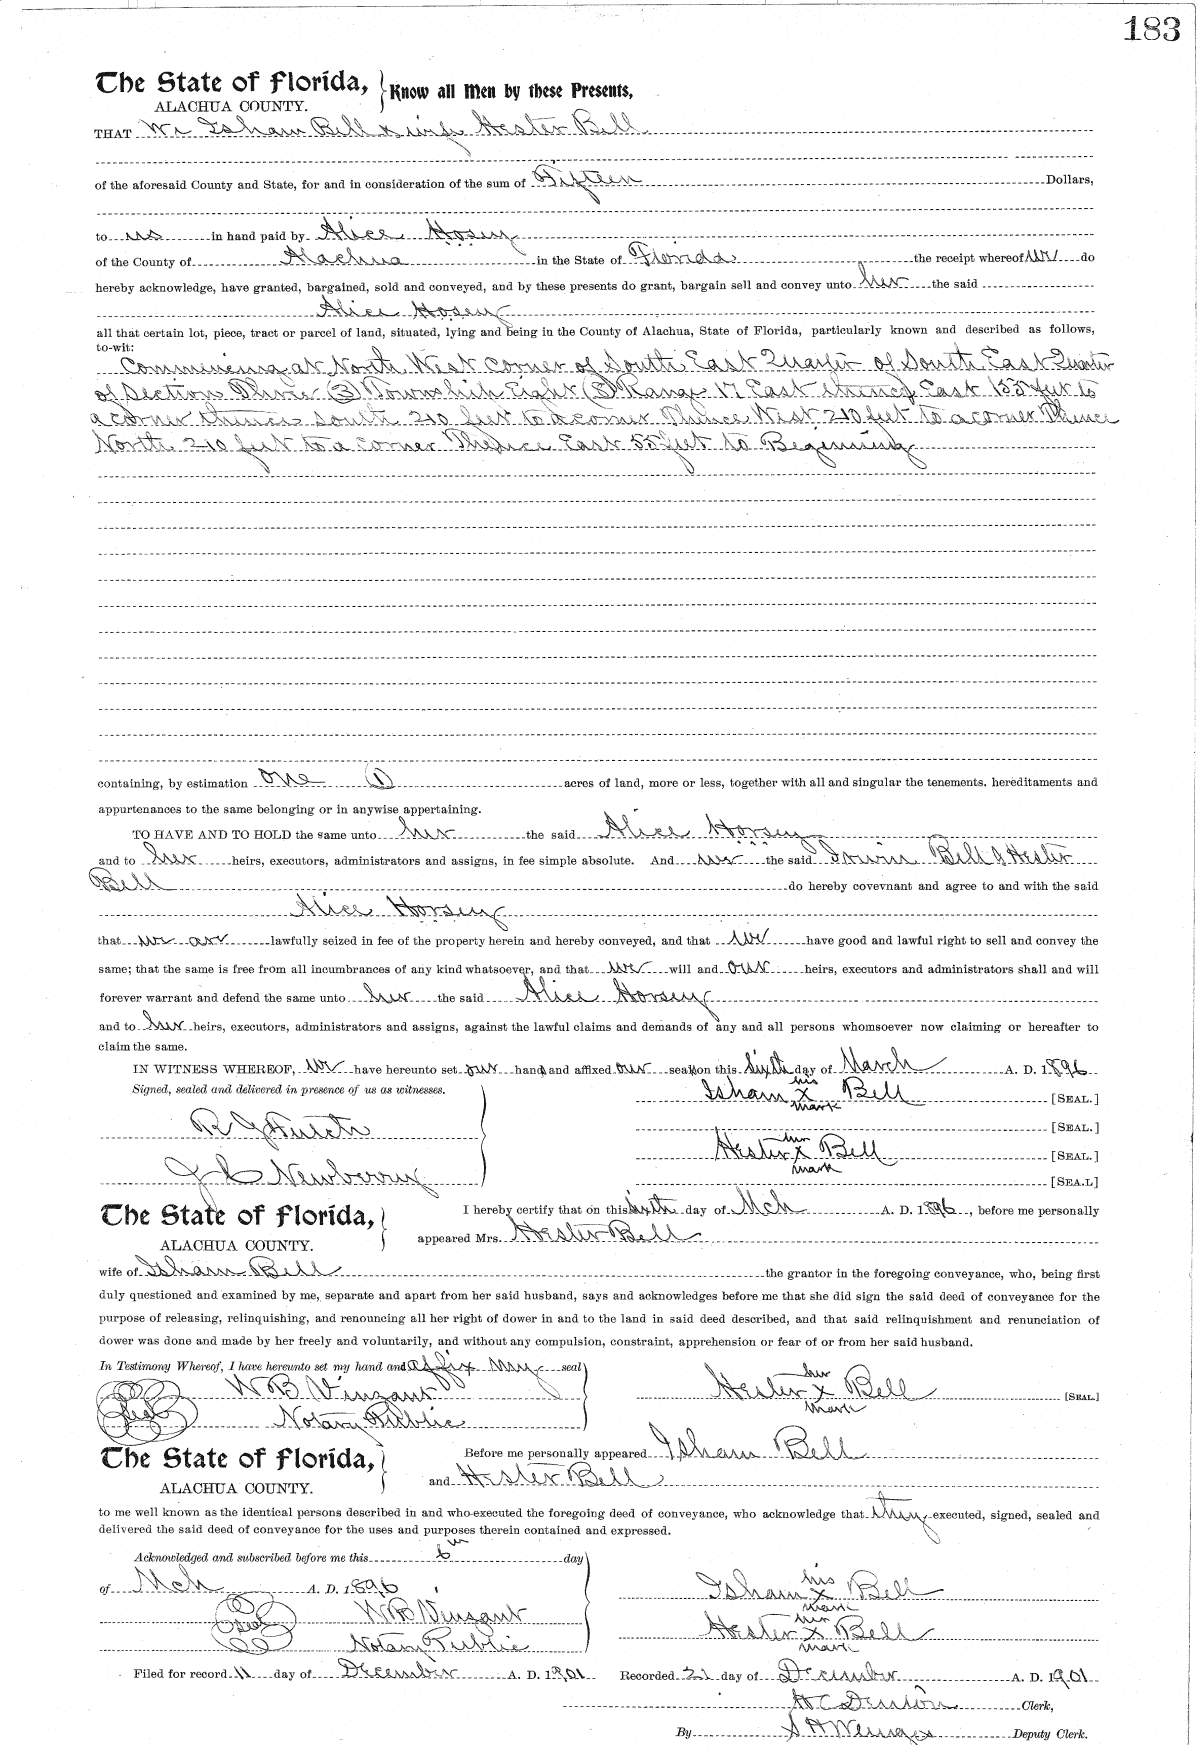 183
The State of Florida, } Know all Men by these Presents,
ALACHUA COUNTY.
THAT We Isham Bell & wife Hester Bell
of the aforesaid County and State, for and in consideration of the sum of Fifteen Dollars,
to us in hand paid by Alice Horsey
of the County of Alachua in the State of Florida the receipt whereof we do
hereby acknowledge, have granted, bargained, sold and conveyed, and by these presents do grant, bargain sell and convey unto her the said
Alice Horsey
all that certain lot, piece, tract or parcel of land, situated, lying and being in the County of Alachua, State of Florida, particularly known and described as follows,
to-wit:
Commencing at North West corner of South East Quarter of South East Quarter
of Section Three (3) Township Eight (8) Range 17 East thence East 155 feet to
a corner thence south 210 feet to a corner Thence West 210 feet to a corner Thence
North 210 feet to a corner Thence East 55 feet to Beginning
containing, by estimation one (1) acres of land, more or less, together with all and singular the tenements. hereditaments and
appurtenances to the same belonging or in anywise appertaining.
TO HAVE AND TO HOLD the same unto her the said Alice Horsey
and to her heirs, executors, administrators and assigns, in fee simple absolute. And we the said Irwin Bell & Hester
Bell do hereby covevnant and agree to and with the said
Alice Horsey
that we are lawfully seized in fee of the property herein and hereby conveyed, and that we have good and lawful right to sell and convey the
same; that the same is free from all incumbrances of any kind whatsoever, and that we will and our heirs, executors and administrators shall and will
forever warrant and defend the same unto her the said Alice Horsey
and to her heirs, executors, administrators and assigns, against the lawful claims and demands of any and all persons whomsoever now claiming or hereafter to
claim the same.
IN WITNESS WHEREOF, we have hereunto set our hands and affixed our seals on this sixth day of March A. D. 1896
Signed, sealed and delivered in presence of us as witnesses.
his
Isham x Bell [SEAL.]
mark
R G Futch [SEAL.]
her
Hester x Bell [SEAL.]
mark
J C Newberry [SEA.L]
The State of Florida, } I hereby certify that on this sixth day of Mch A. D. 1896, before me personally
ALACHUA COUNTY. appeared Mrs. Hester Bell
wife of Isham Bell the grantor in the foregoing conveyance, who, being first
duly questioned and examined by me, separate and apart from her said husband, says and acknowledges before me that she did sign the said deed of conveyance for the
purpose of releasing, relinquishing, and renouncing all her right of dower in and to the land in said deed described, and that said relinquishment and renunciation of
dower was done and made by her freely and voluntarily, and without any compulsion, constraint, apprehension or fear of or from her said husband.
In Testimony Whereof, I have hereunto set my hand and affix my seal
her
W B Vinzant Hester x Bell [SEAL]
mark
Seal Notary Public
The State of Florida, } Before me personally appeared Isham Bell
ALACHUA COUNTY. and Hester Bell
to me well known as the identical persons described in and who executed the foregoing deed of conveyance, who acknowledge that they executed, signed, sealed and
delivered the said deed of conveyance for the uses and purposes therein contained and expressed.
Acknowledged and subscribed before me this 6th day
of Mch A. D. 1896
his
Isham x Bell
mark
Seal W B Vinzant
her
Hester x Bell
mark
Notary Public
Filed for record 11 day of December A. D. 1901 Recorded 21 day of December A. D. 1901
H C Denton Clerk,
By S H Wienges Deputy Clerk.